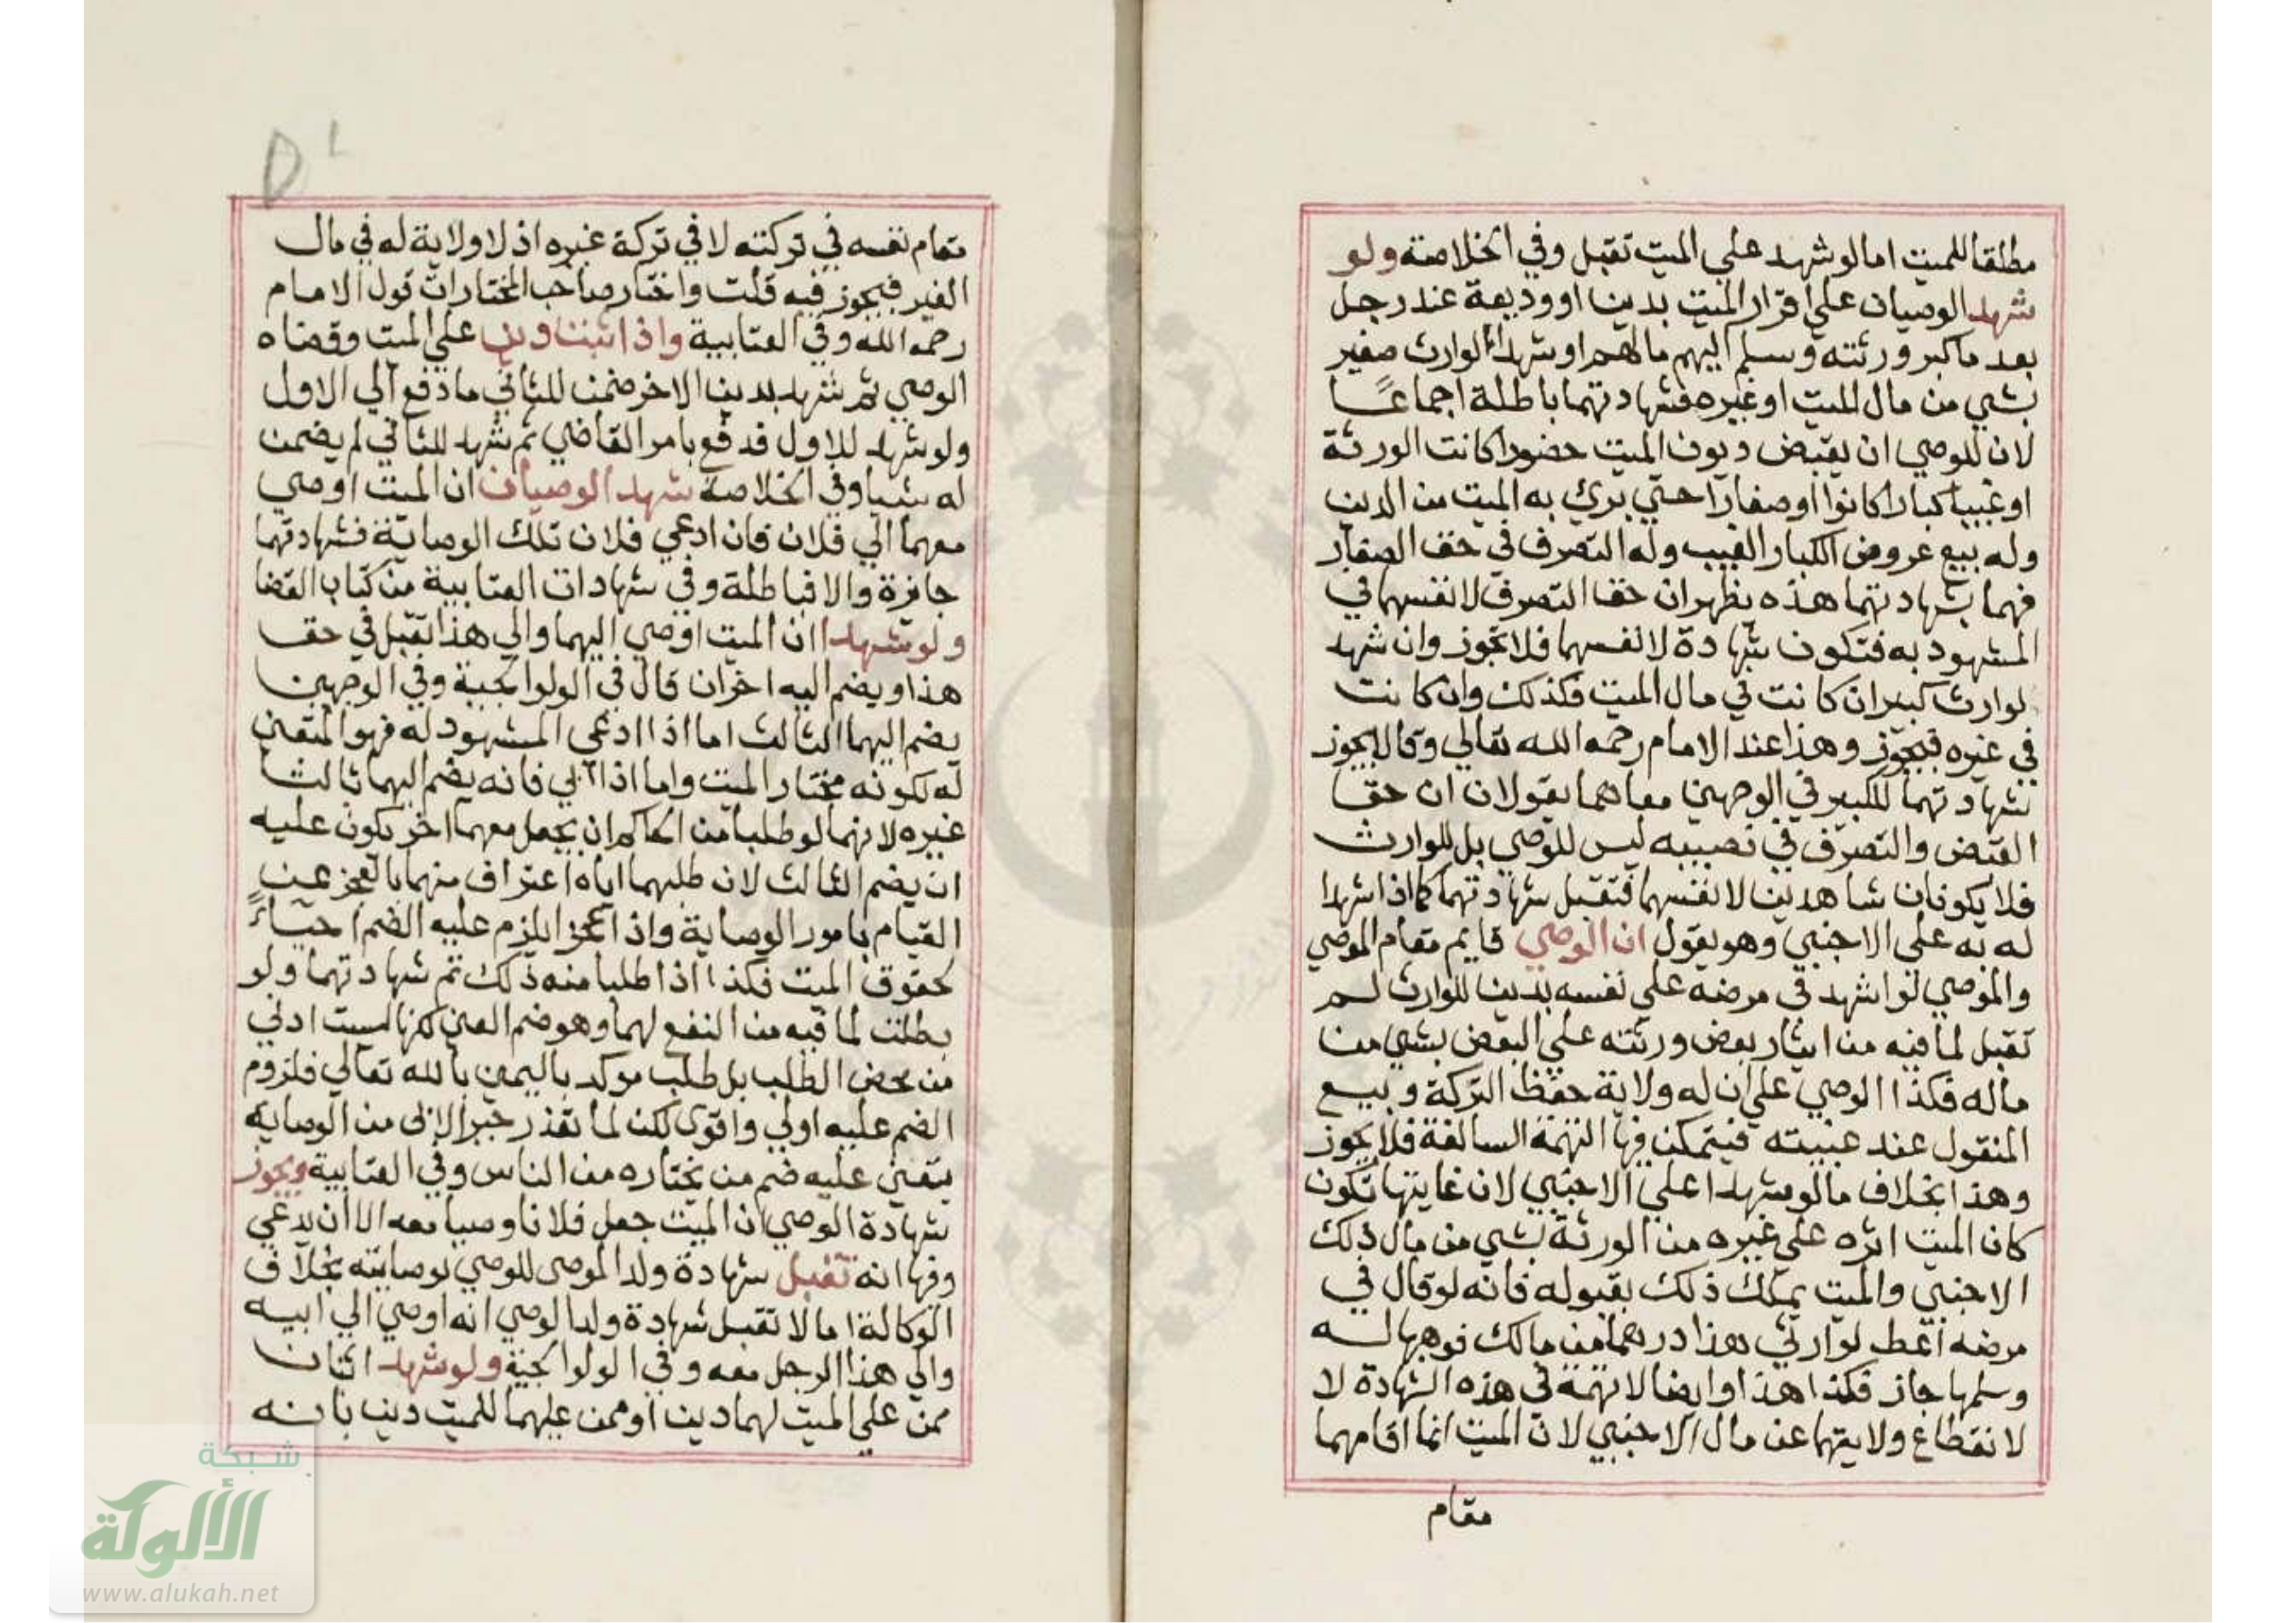 مطلقا للميت اما لو شهد علي الميت تقبل وفي الخلاصة ولو
شهد الوصيان علي اقرار الميت بدين او وديعة عند رجل
بعد ما كبر ورثته وسلم اليهم مالهم او شهدا لوارث صغير
بشي من مال الميت او غيره فشهادتهما باطلة اجماعًا
لان للوصي ان يقبض ديون الميت حضورا كانت الورثة
او غيبا كبارا كانوا او صغارا حتي يبرئ به الميت من الدين
وله بيع عروض الكبار الغيب وله التصرف في حق الصغار
فهما بشهادتهما هذه يظهران حق التصرف لانفسهما في
المشهود به فتكون شهادة لانفسهما فلا تجوز وان شهد
لوارث كبير ان كانت في مال الميت فكذلك وان كانت
في غيره فيجوز وهذا عند الامام رحمه الله تعالي وقالا يجوز
شهادتهما للكبير في الوجهين معا هما يقولان ان حق
القبض والتصرف في نصيبه ليس للوصي بل للوارث
فلا يكونان شاهدين لانفسهما فتقبل شهادتهما كما اذا شهدا
له به علي الاجنبي وهو يقول ان الوصي قايم مقام الموصي
والموصي لو اشهد في مرضه علي نفسه بدين للوارث لم
تقبل لما فيه من ايثار بعض ورثته علي البعض بشي من
ماله فكذا الوصي علي ان له ولاية حفظ التركة وبيع
المنقول عند غيبته فيتمكن فيها التهمة السالفة فلا يجوز
وهذا بخلاف ما لو شهدا علي الاجنبي لان غايتها تكون
كان الميت اثره علي غيره من الورثة بشي من مال ذلك
الاجنبي والميت يملك ذلك بقبوله فانه لو قال في
مرضه اعط لوارثي هذا درهما من مالك فوهبها له
وسلمها جاز فكذا هذا وايضا لا تهمة في هذه الشهادة لا
لانقطاع ولايتهما عن مال الاجنبي لان الميت انما اقامهما
مقام
مقام نفسه في تركته لا في تركة غيره اذ لا ولاية له في مال
الغير فيجوز فيه قلت واختار صاحب المختارات قول الامام
رحمه الله وفي العتابية واذا اثبت دين علي الميت وقضاه
الوصي ثم شهد بدين الاخر ضمن للثاني ما دفع الي الاول
ولو شهد للاول فدفع بامر القاضي ثم شهد للثاني لم يضمن
له شيا وفي الخلاصة شهد الوصيان ان الميت اوصي
معهما الي فلان فان ادعي فلان تلك الوصاية فشهادتهما
جايزة والا فباطلة وفي شهادات العتابية من كتاب القضا
ولو شهدا ان الميت اوصي اليهما والي هذا تقبل في حق
هذا ويضم اليه اخران قال في الولوالجية وفي الوجهين
يضم اليهما الثالث اما اذا ادعي المشهود له فهو المتعين
له لكونه مختار الميت واما اذا ابي فانه يضم اليهما ثالث
غيره لانهما لو طلبا من الحاكم ان يجعل معهما اخر يكون عليه
ان يضم الثالث لان طلبهما اياه اعتراف منهما بالعجز عن
القيام بامور الوصاية واذا عجزا يلزم عليه الضم احياءً
لحقوق الميت فكذا اذا طلبا منه ذلك ثم شهادتهما ولو
بطلت لما فيه من النفع لهما وهو ضم المعين لكنها ليست ادني
من محض الطلب بل طلب موكد باليمين بالله تعالي فلزوم
الضم عليه اولي واقوي لكن لما تعذر جبر الابي من الوصاية
يتعين عليه ضم من يختاره من الناس وفي العتابية ويجوز
شهادة الوصي ان الميت جعل فلانا وصيا معه الا ان يدعي
وفيها انه تقبل شهادة ولد الموصي للوصي بوصايته بخلاف
الوكالة اما لا تقبل شهادة ولد الوصي انه اوصي الي ابيه
والي هذا الرجل معه وفي الولوالجية ولو شهد اثنان
ممن علي الميت لهما دين او ممن عليهما للميت دين بانه
شبكة
الألوكة
www.alukah.net